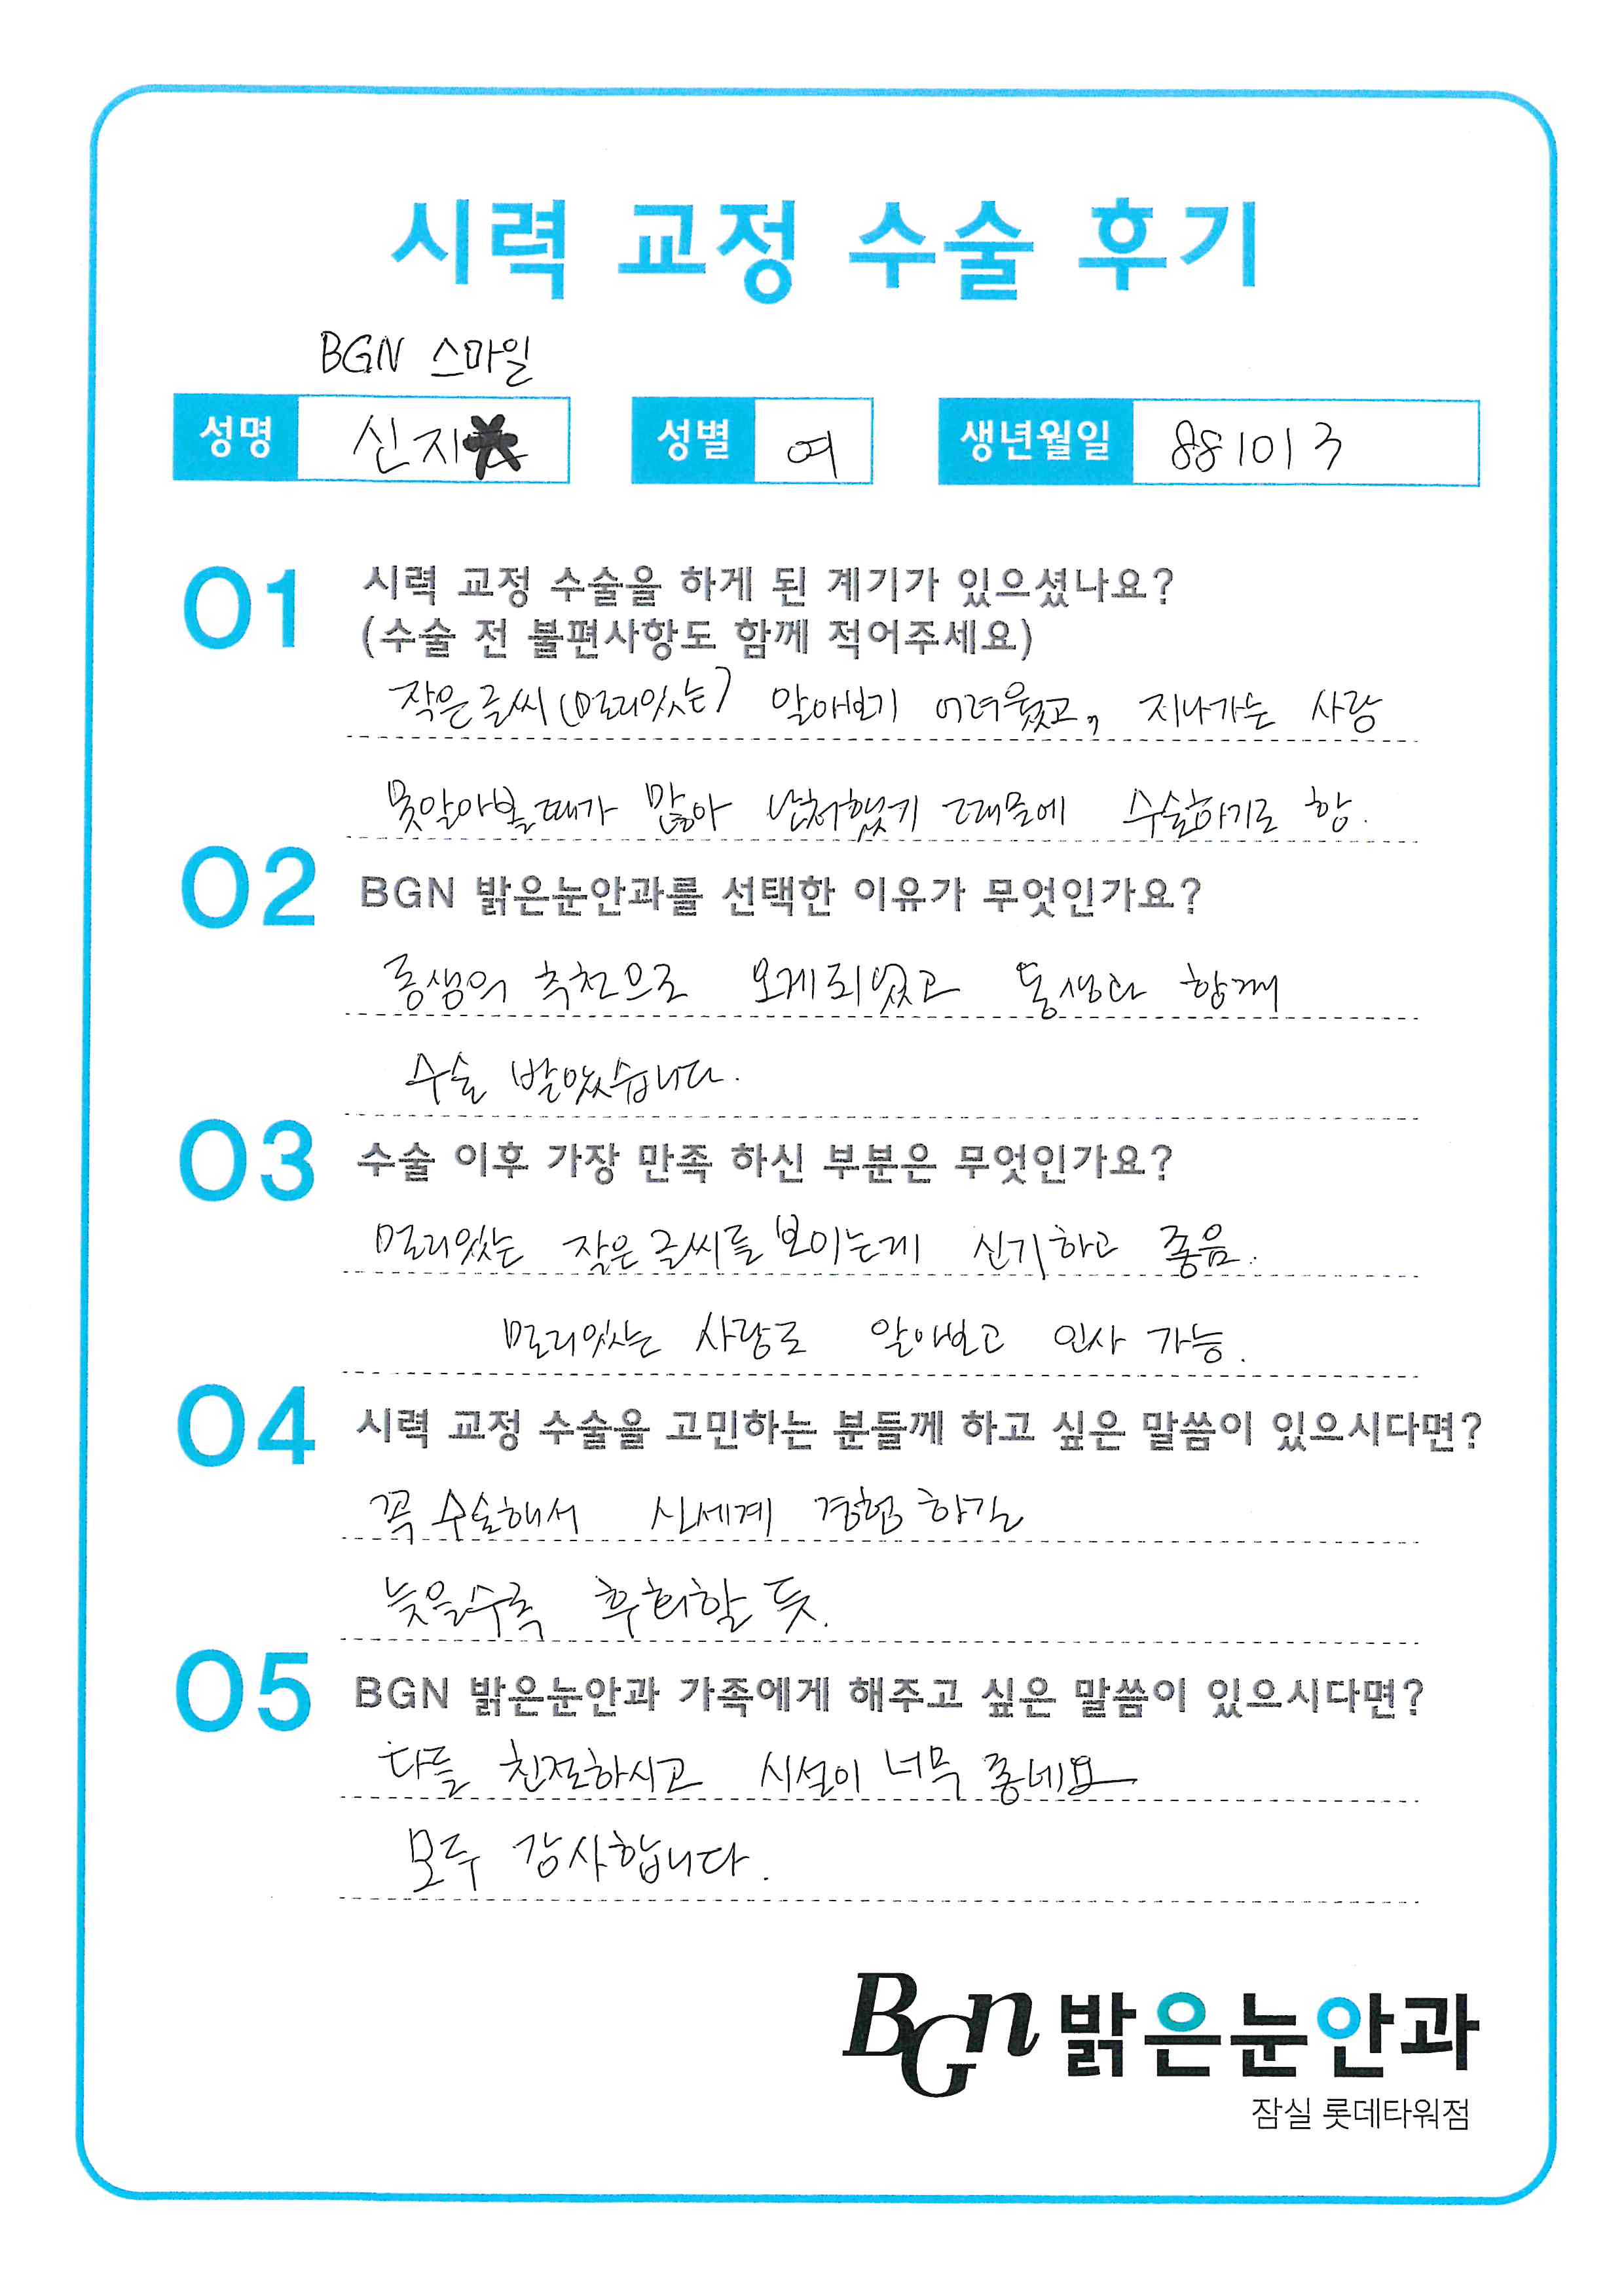 시력 교정 수술 후기
BGN 스마일
성명 신지
성별 여
생년월일 881013
01 시력 교정 수술을 하게 된 계기가 있으셨나요?
(수술 전 불편사항도 함께 적어주세요)
작은글씨(멀리있는) 알아보기 어려웠고, 지나가는 사람
못알아볼때가 많아 난처했기 때문에 수술하기로 함.
02 BGN 밝은눈안과를 선택한 이유가 무엇인가요?
동생의 추천으로 오게되었고 동생과 함께
수술 받았습니다.
03 수술 이후 가장 만족 하신 부분은 무엇인가요?
멀리있는 작은글씨를 보이는게 신기하고 좋음.
멀리있는 사람도 알아보고 인사 가능.
04 시력 교정 수술을 고민하는 분들께 하고 싶은 말씀이 있으시다면?
꼭 수술해서 신세계 경험하길
늦을수록 후회할 듯.
05 BGN 밝은눈안과 가족에게 해주고 싶은 말씀이 있으시다면?
다들 친절하시고 시설이 너무 좋네요
모두 감사합니다.
BGn 밝은눈안과
잠실 롯데타워점